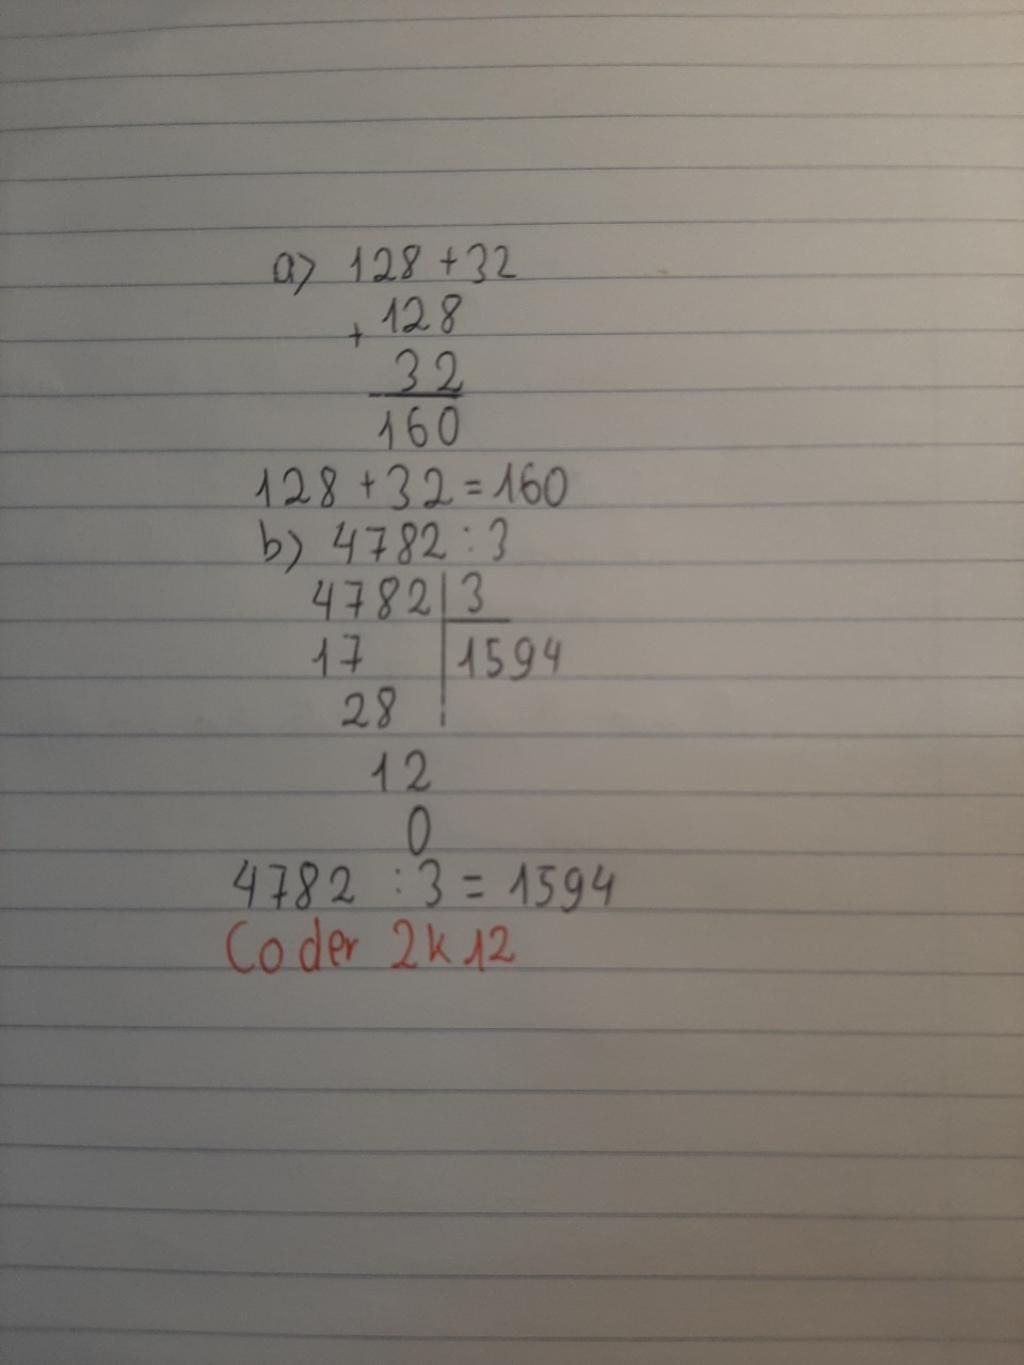 a) 128 + 32
+ 128
32
160
128 + 32 = 160
b) 4782 : 3
4782 3
17 1594
28
12
0
4782 : 3 = 1594
Coder 2k12